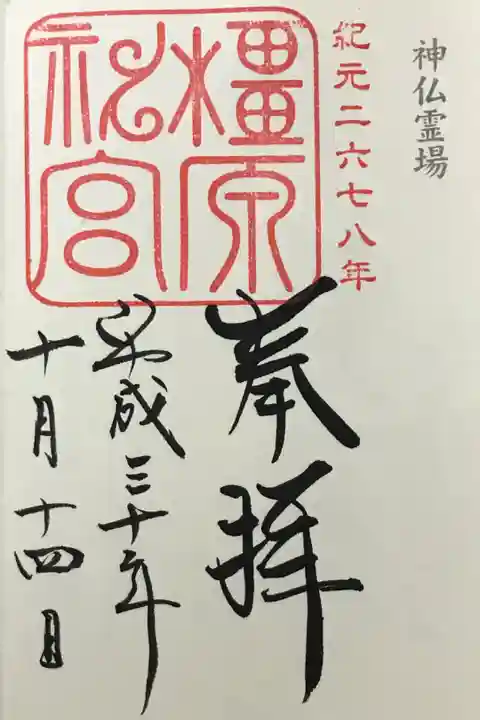 神仏霊場
紀元二六七八年
橿原
神宮
奉拝
平成三十年
十月十四日